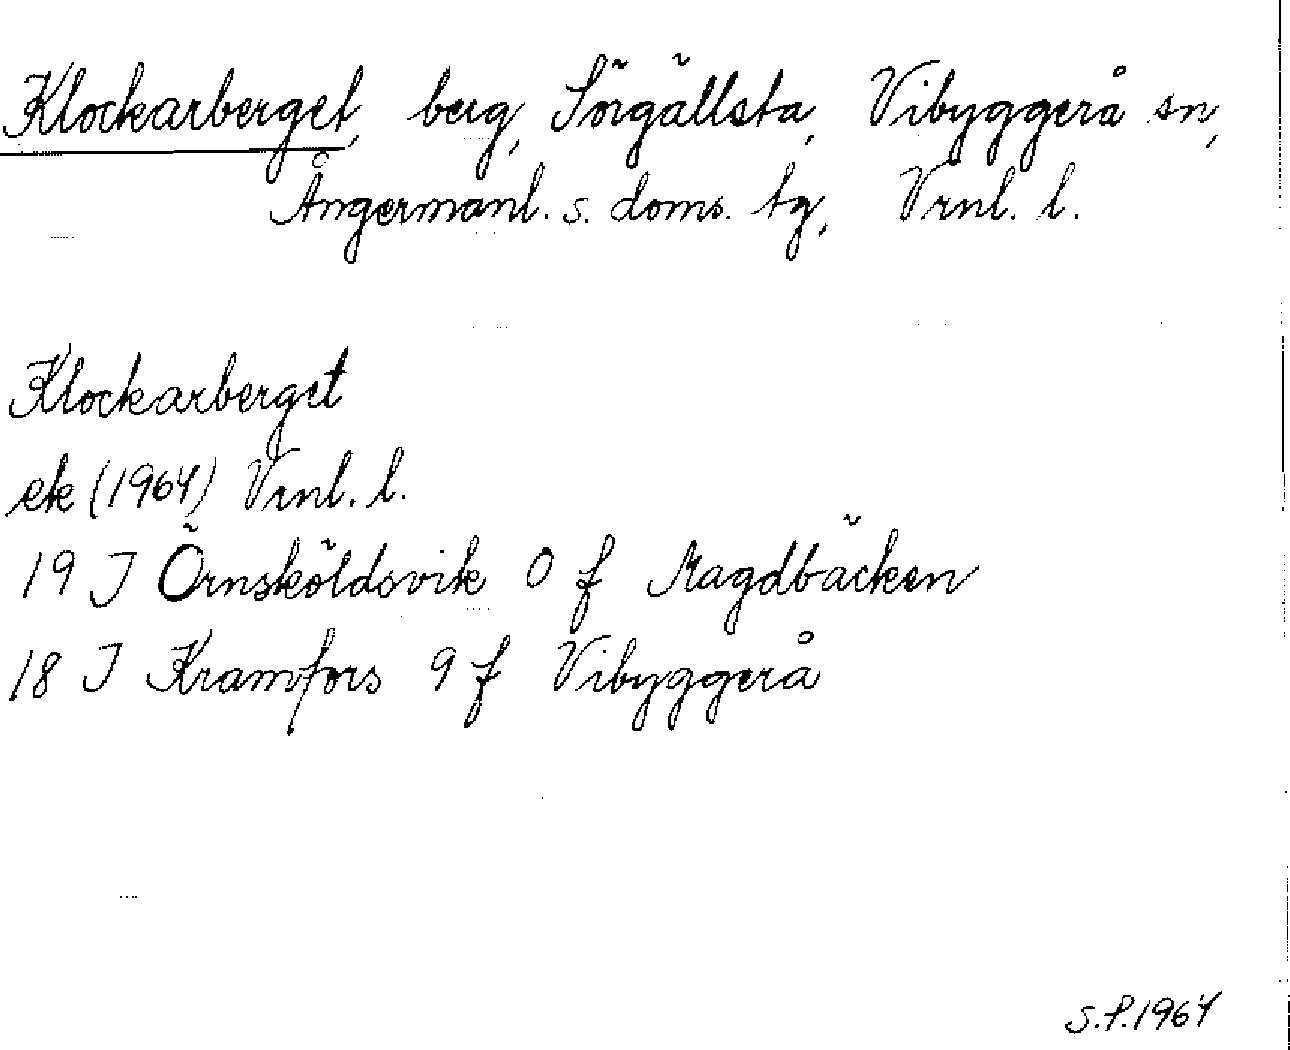 Klockarberget, berg, Sörgällsta, Vibyggerå sn,
Ångermanl. s. doms. tg, Vrnl. l.
Klockarberget
ek (1964) Vrnl. l.
19 J Örnsköldsvik 0 f Magdbäcken
18 J Kramfors 9 f Vibyggerå
S.P. 1964